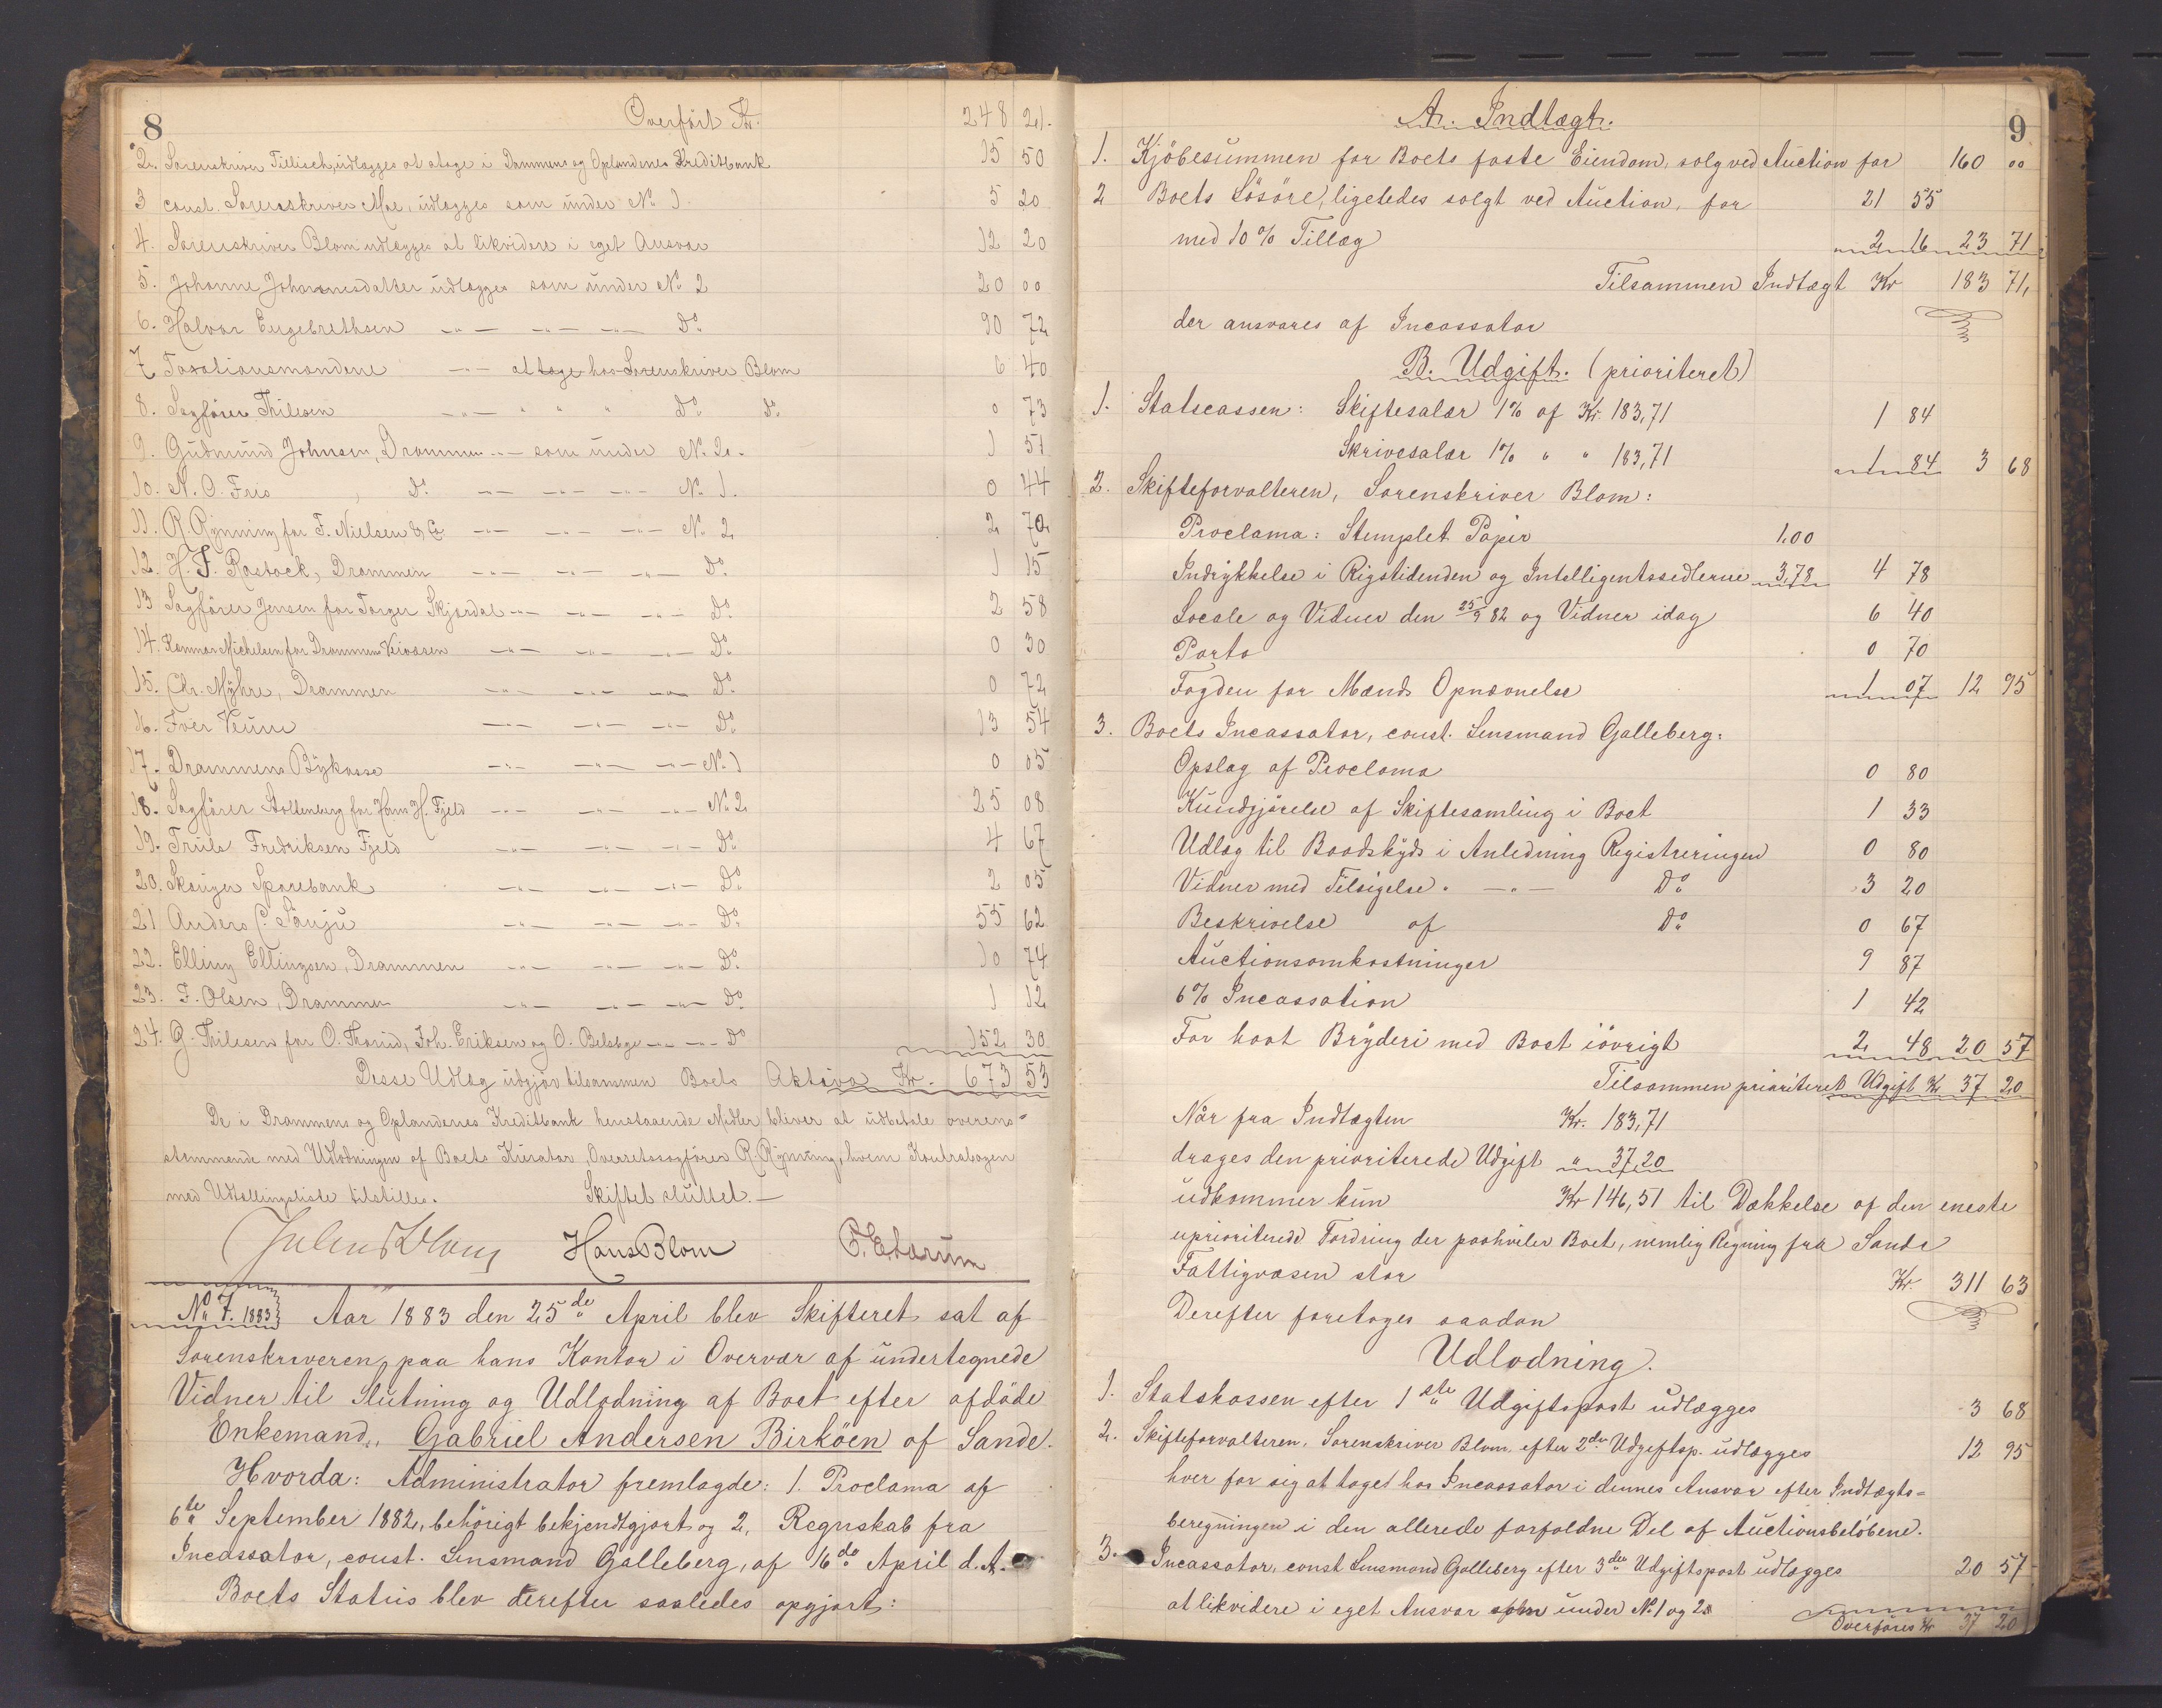 8
Overført Kr. 248 21.
2. Sorenskriver Tillisch, udlægges at atage i Drammens og Oplandenes Kreditbank 15 50
3 const. Sorenskriver Moe, udlægges som under No 1. 5 20
4. Sorenskriver Blom udlægges at likvidere i eget Ansvar 12 20
5. Johanne Johannesdatter udlægges som under No 2 20 00
6. Halvor Engebrethsen -"- -"- -"- Do 90 72
7 Taxationsmændene -"- at tage hos Sorenskriver Blom 6 40
8. Sagfører Thilesen -"- " " " Do Do 0 73
9. Gudmund Johnsen, Drammen -"- som under No 2. 1 51
10. N. O. Friis, Do -"- -"- -"- No 1. 0 44
11. R. Rynning for F. Nielsen & Co -"- -"- -"- No 2 2 70
12. H. F. Rostock, Drammen -"- -"- -"- Do 1 15
13 Sagfører Jensen for Torger Skjørdal -"- -"- -"- Do 2 58
14. Kemner Michelsen for Drammens Veivæsen -"- -"- -"- Do 0 30
15. Chr. Myhre, Drammen -"- -"- -"- Do 0 72
16. Iver Veum -"- -"- -"- Do 13 54
17. Drammens Bykasse -"- -"- -"- No 1 0 05
18. Sagfører Stoltenberg for Hans H. Fjeld -"- -"- -"- No 2 25 08
19. Truls Fredriksen Fjeld -"- -"- -"- Do 4 67
20. Skouger Sparebank -"- -"- -"- Do 2 05
21 Anders C. Sønju -"- -"- -"- Do 55 62
22. Elling Ellingsen, Drammen -"- -"- -"- Do 10 74
23. F. Olsen, Drammen -"- -"- -"- Do 1 12
24. G. Thilesen for O. Thorud, Joh. Eriksen og O. Belshge -"- -"- Do 152 30
Disse Udlæg udgjør tilsammen Boets Aktiva Kr. 673 53
De i Drammens og Oplandenes Kreditbank henstaaende Midler bliver at udbetale overens-
stemmende med Udlodningen af Boets Kurator, Overretssagfører R. Rynning, hvem Kontrabogen
med Udtællingsliste tilstilles. Skiftet sluttet. —
Hans Blom
No 7. 1883 Aar 1883 den 25de April blev Skifteret sat af
Sorenskriveren paa hans Kontor i Overvær af undertegnede
Vidner til Slutning og Udlodning af Boet efter afdøde
Enkemand, Gabriel Andersen Birköen af Sande.
Hvorda: Administrator fremlagde: 1. Proclama af
6te September 1882, behørigt bekjendtgjort og 2, Regnskab fra
Incassator, const. Lensmand Galleberg, af 16de April d. A.
Boets Status blev derefter saaledes opgjort:
9
A. Indtægt.
1. Kjöbesummen for Boets faste Eiendom, solg ved Auction for 160 00
2 Boets Lösöre, ligeledes solgt ved Auction, for 21 55
med 10 % Tillæg 2 16 23 71
Tilsammen Indtægt Kr 183 71,
der ansvares af Incassator
B. Udgift. (prioriteret)
1. Statscassen: Skiftesalær 1% af Kr. 183,71 1 84
Skrivesalær 1% " " 183,71 1 84 3 68
2. Skifteforvalteren, Sorenskriver Blom:
Proclama: Stemplet Papir 1.00
Indrykkelse i Rigstidenden og Intelligentssedlerne 3,78 4 78
Locale og Vidner den 25/9 82 og Vidner idag 6 40
Porto 0 70
Fogden for Mænds Opnævnelse 1 07 12 95
3. Boets Incassator, const. Lensmand Galleberg:
Opslag af Proclama 0 80
Kundgjörelse af Skiftesamling i Boet 1 33
Udlæg til Baadskyds i Anledning Registreringen 0 80
Vidner med Tilsigelse. -"- Do 3 20
Beskrivelse af Do 0 67
Auctionsomkostninger 9 87
6% Incassation 1 42
For havt Bryderi med Boet iövrigt 2 48 20 57
Tilsammen prioriteret Udgift Kr 37 20
Når fra Indtægten Kr. 183,71
drages den prioriterede Udgift " 37,20
udkommer kun Kr 146,51 til Dækkelse af den eneste
uprioriterede Fordring der paahviler Boet, nemlig Regning fra Sande
Fattigvæsen stor Kr. 311 63
Derefter foretages saadan
Udlodning.
1. Statskassen efter 1ste Udgiftspost udlægges 3 68
2. Skifteforvalteren, Sorenskriver Blom efter 2den Udgiftsp. udlægges 12 95
hver for sig at tage hos Incassator i dennes Ansvar efter Indtægts=
beregningen i den allerede forfaldne Del af Auctionsbeløbene.
3. Incassator, const Lensmand Galleberg efter 3die Udgiftspost udlægges 20 57
at likvidere i eget Ansvar som under No 1 og 2
Overføres Kr 37 20